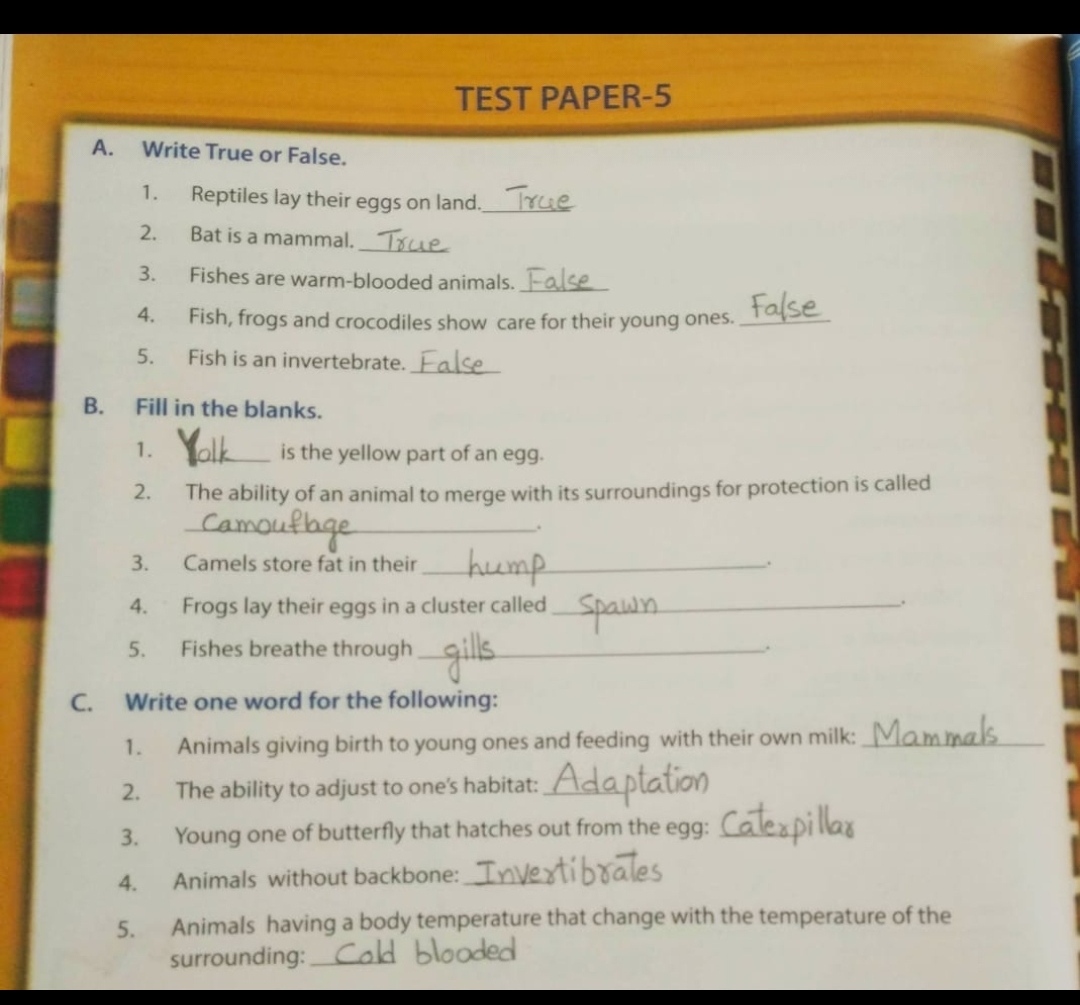 TEST PAPER-5
A. Write True or False.
1. Reptiles lay their eggs on land. True
2. Bat is a mammal. True
3. Fishes are warm-blooded animals. False
4. Fish, frogs and crocodiles show care for their young ones. False
5. Fish is an invertebrate. False
B. Fill in the blanks.
1. Yolk is the yellow part of an egg.
2. The ability of an animal to merge with its surroundings for protection is called
Camouflage.
3. Camels store fat in their hump.
4. Frogs lay their eggs in a cluster called Spawn.
5. Fishes breathe through gills.
C. Write one word for the following:
1. Animals giving birth to young ones and feeding with their own milk: Mammals
2. The ability to adjust to one's habitat: Adaptation
3. Young one of butterfly that hatches out from the egg: Caterpillar
4. Animals without backbone: Invertibrates
5. Animals having a body temperature that change with the temperature of the
surrounding: Cold blooded